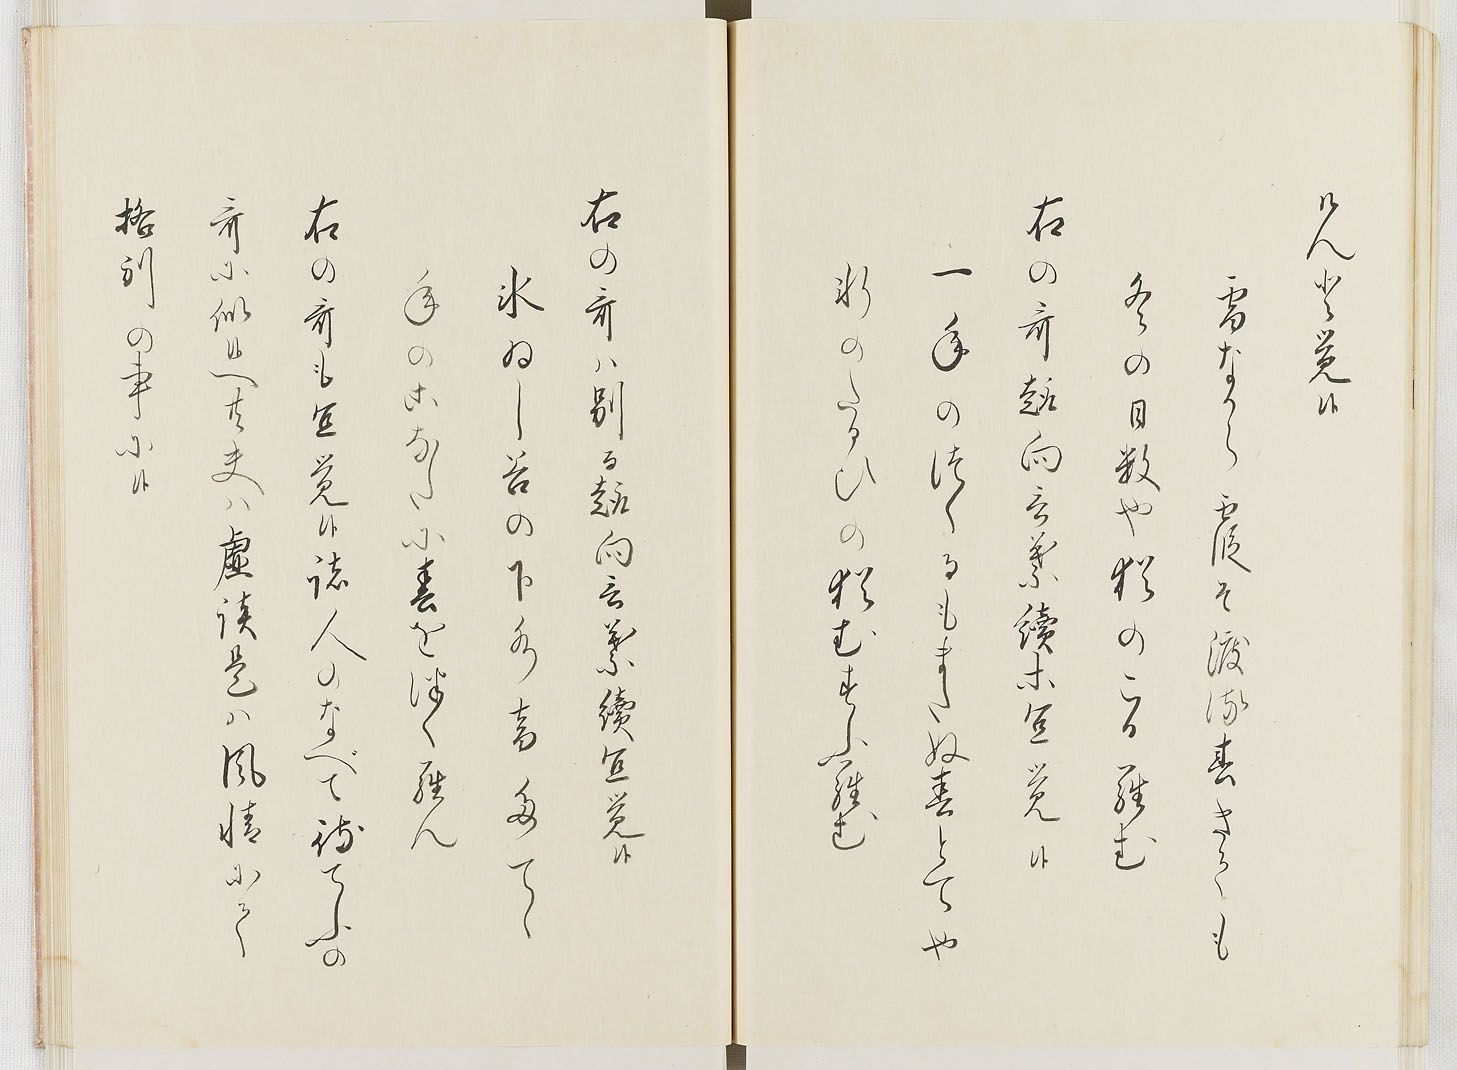 けんと覚候
雪なから霞そ渡流春きても
冬の日数や猶のこる羅む
右の哥趣向言葉續よ宜覚候
一年の徒くるもまた奴春とてや
氷のたるひの猶むすふ羅む
右の哥ハ別る趣向言葉續宜覚候
氷ゐし谷の下水音多てゝ
年のこなたに春を徒く羅ん
右の哥も宜覚候諸人のなべて詠てふの
哥に似せ候へ共夫ハ虚談是ハ風情にて
格別の事に候